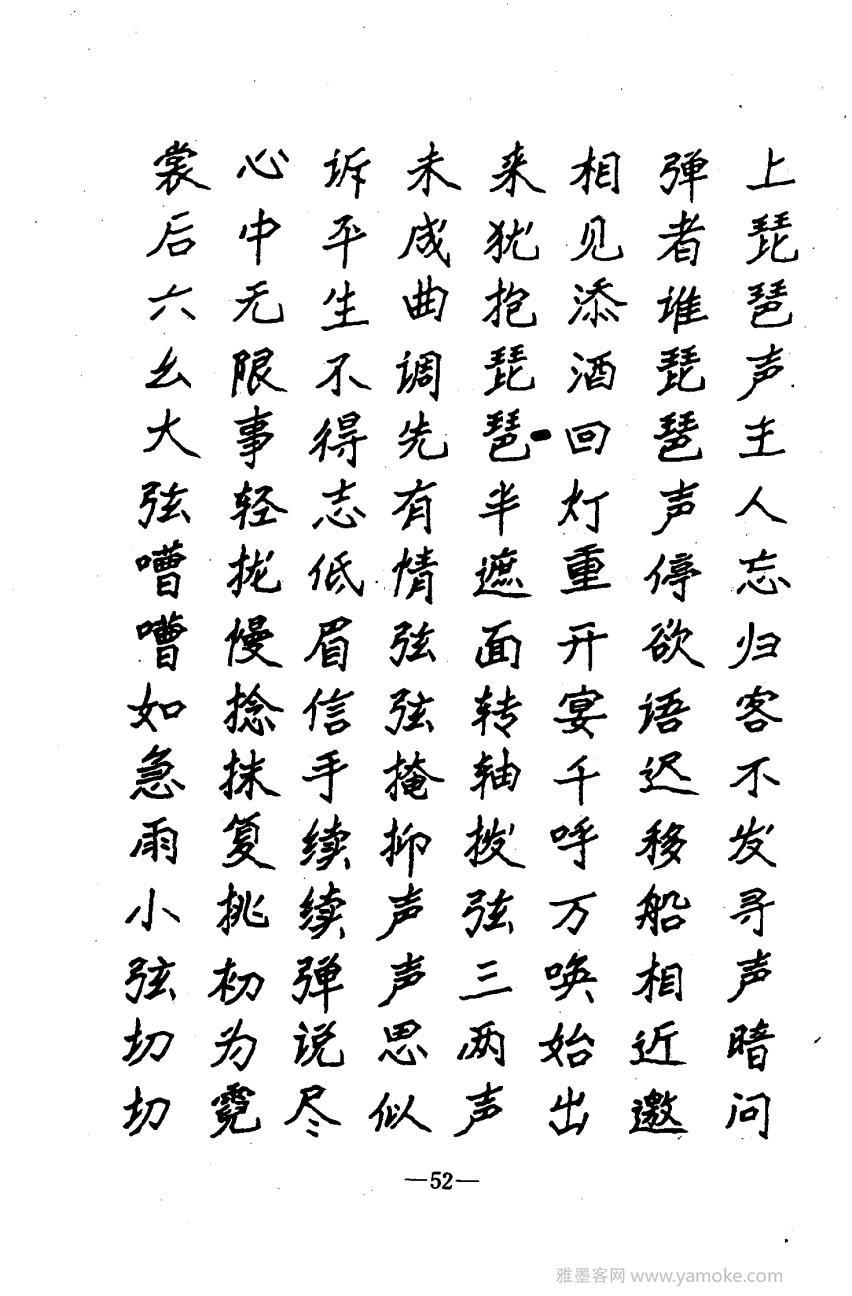 上琵琶声主人忘归客不发寻声暗问
弹者谁琵琶声停欲语迟移船相近邀
相见添酒回灯重开宴千呼万唤始出
来犹抱琵琶半遮面转轴拨弦三两声
未成曲调先有情弦弦掩抑声声思似
诉平生不得志低眉信手续续弹说尽
心中无限事轻拢慢捻抹复挑初为霓
裳后六幺大弦嘈嘈如急雨小弦切切
—52—
雅墨客网 www.yamoke.com